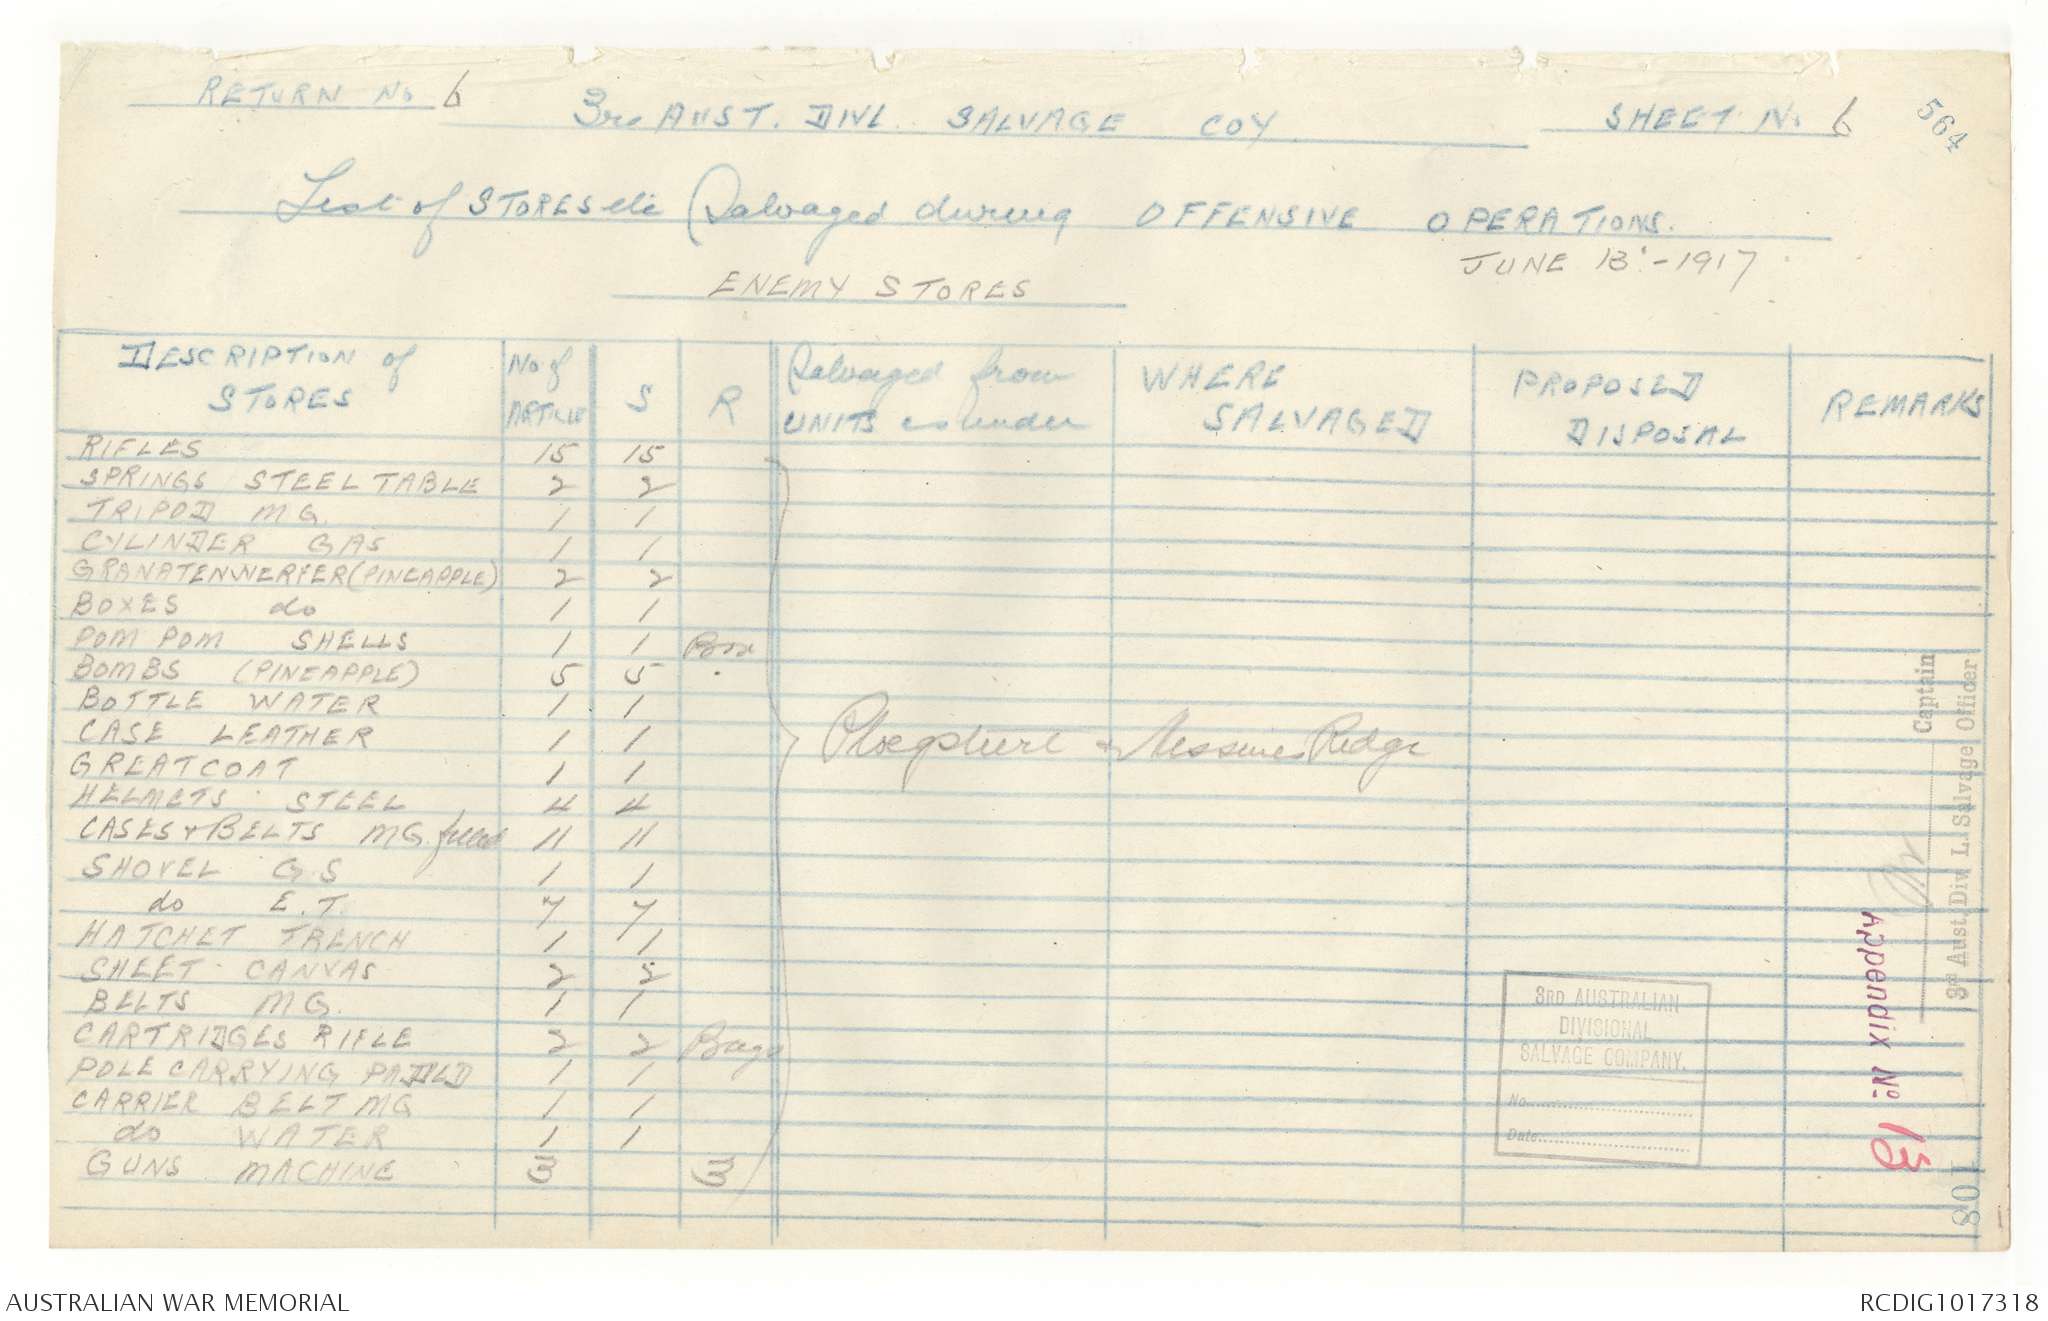 RETURN No 6
3rd AUST. DIVL. SALVAGE COY
SHEET No 6
564
List of STORES etc Salvaged during OFFENSIVE OPERATIONS.
JUNE 13: - 1917
ENEMY STORES
DESCRIPTION of STORES | No of ARTICLE | S | R | Salvaged from UNITS as under | WHERE SALVAGED | PROPOSED DISPOSAL | REMARKS
RIFLES 15 15
SPRINGS STEEL TABLE 2 2
TRIPOD MG. 1 1
CYLINDER GAS 1 1
GRANATENWERFER (PINEAPPLE) 2 2
BOXES do 1 1
POM POM SHELLS 1 1 Box
BOMBS (PINEAPPLE) 5 5
BOTTLE WATER 1 1
CASE LEATHER 1 1
Ploegsteert & Messines Ridge
GREATCOAT 1 1
HELMETS STEEL 4 4
CASES & BELTS MG. filled 11 11
SHOVEL G.S 1 1
do E.T. 7 7
HATCHET TRENCH 1 1
SHEET CANVAS 2 2
BELTS MG. 1 1
CARTRIDGES RIFLE 2 2 Bags
POLE CARRYING PADLD 1 1
CARRIER BELT MG 1 1
do WATER 1 1
GUNS MACHINE 3 3
3RD AUSTRALIAN
DIVISIONAL
SALVAGE COMPANY.
No.
Date
Captain
3rd Aust. Div L. Salvage Officer
Appendix No. 13
801
AUSTRALIAN WAR MEMORIAL
RCDIG1017318